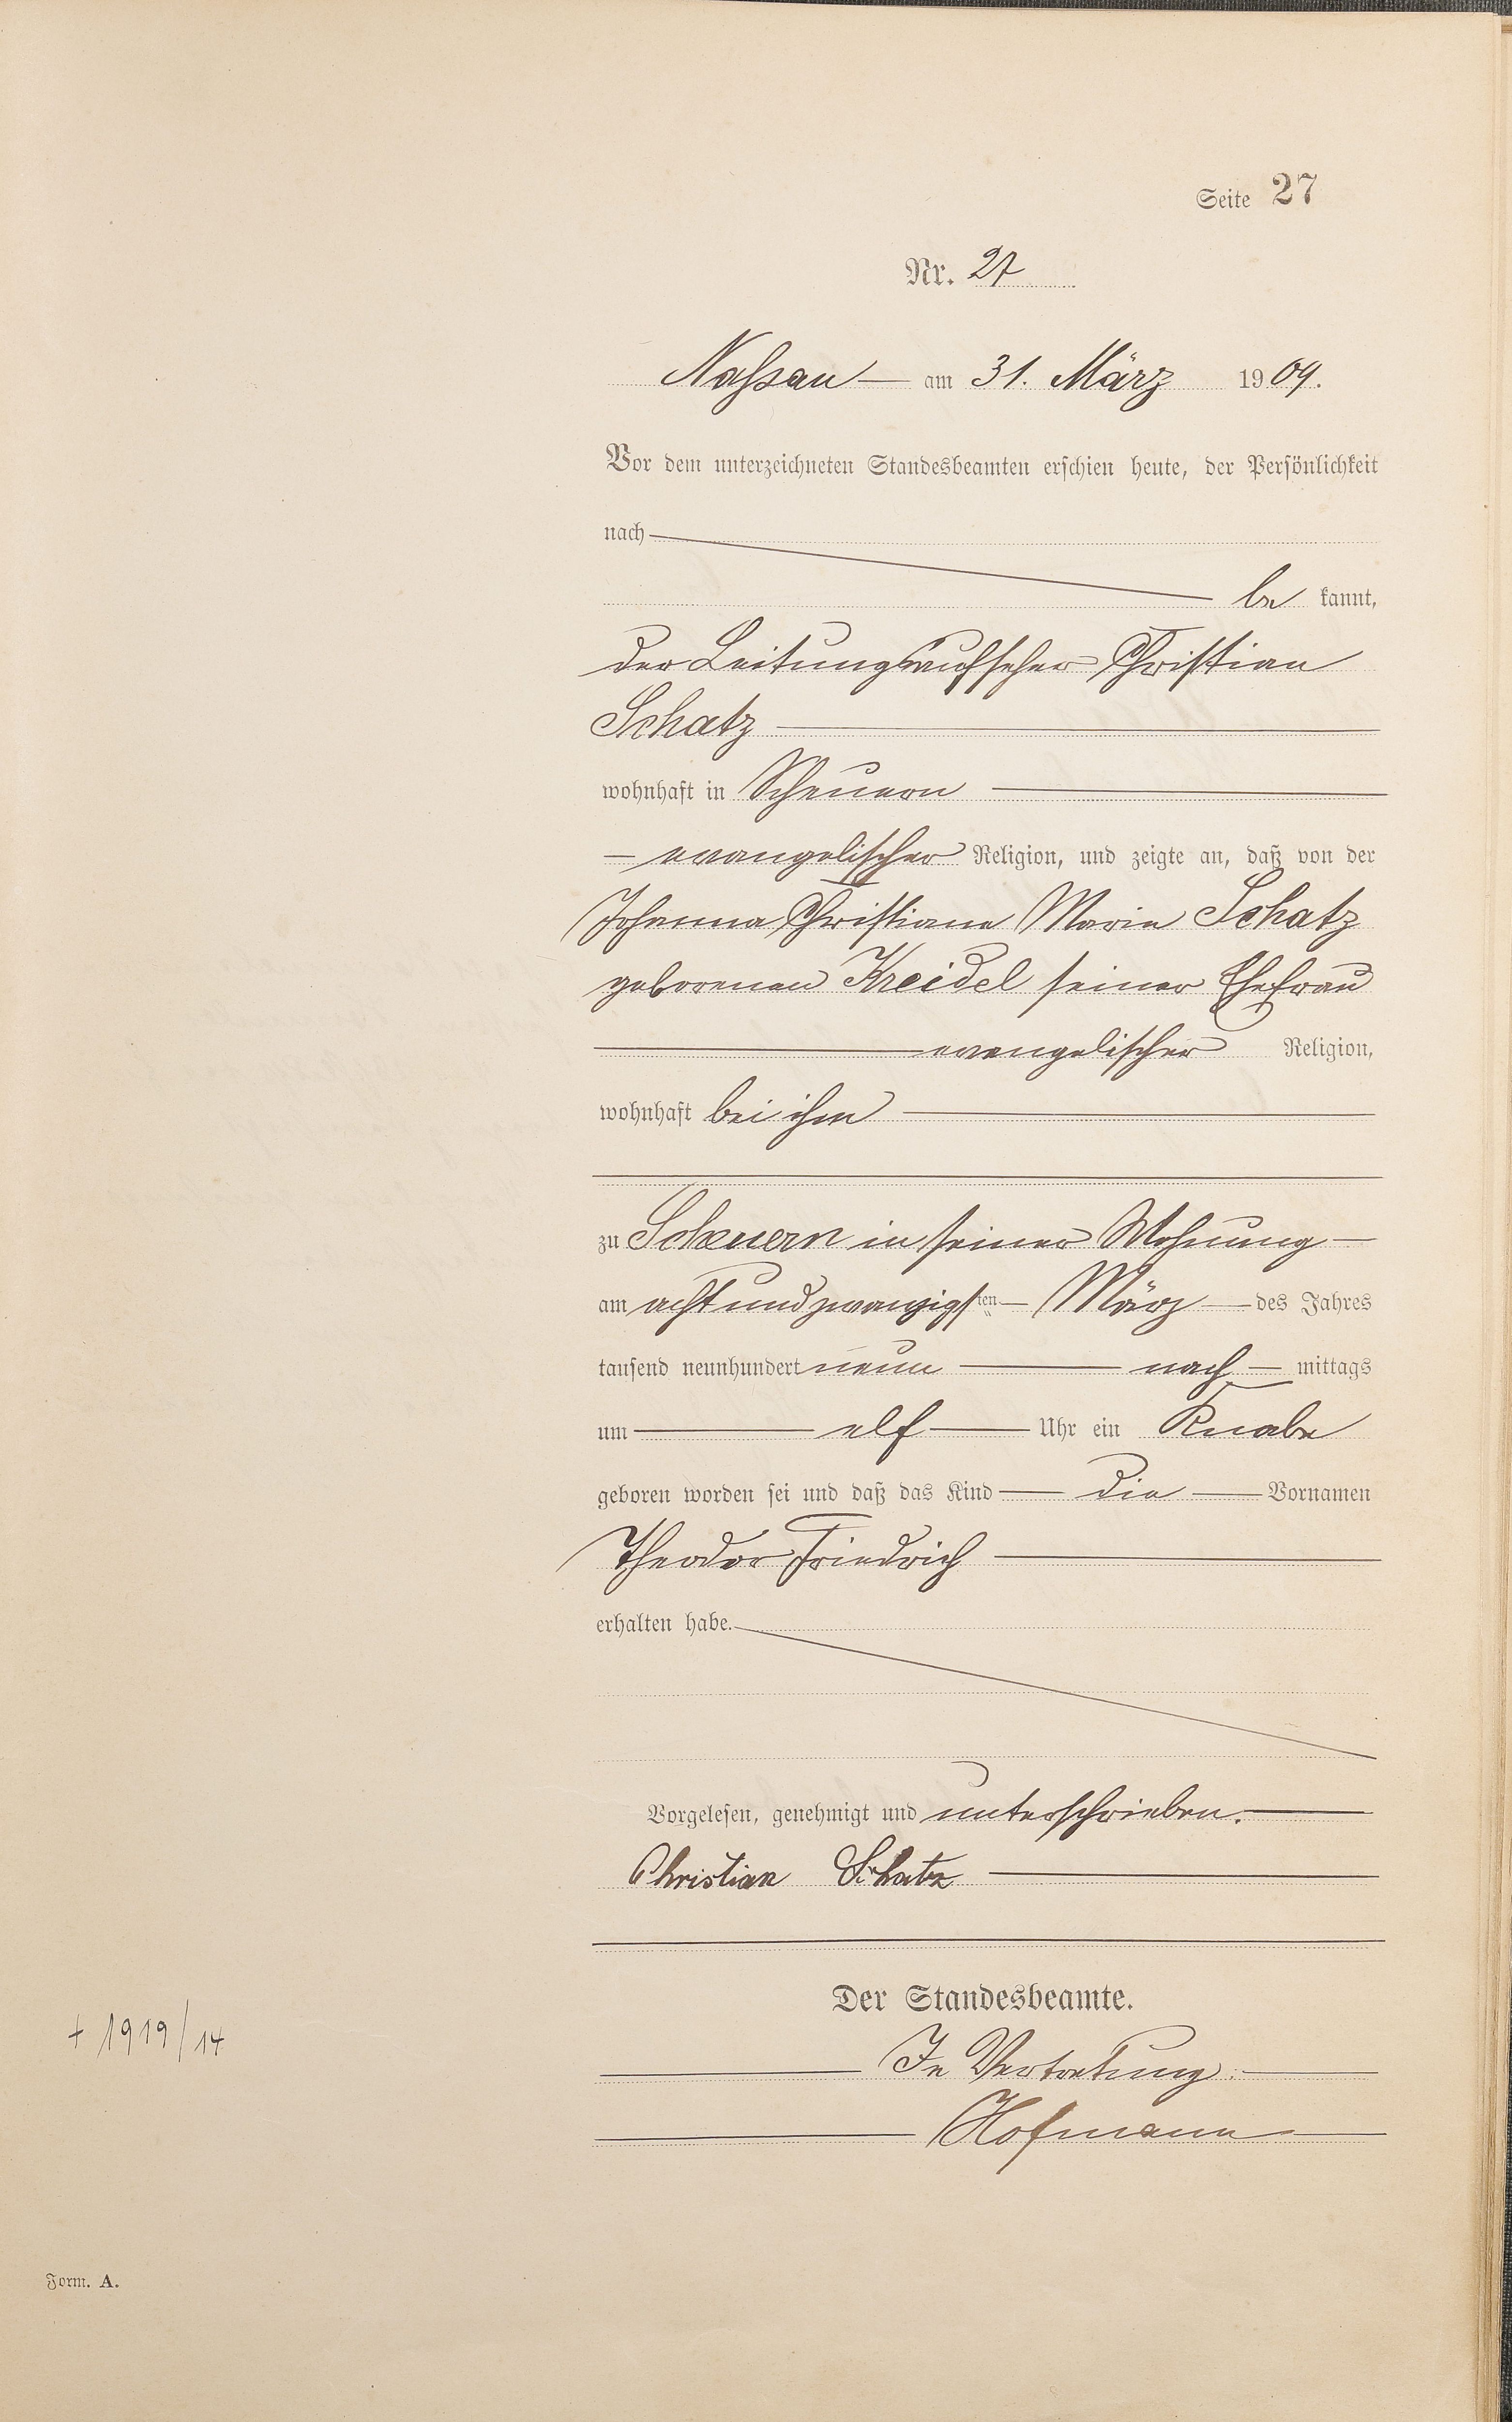 Seite 27
Nr. 27
Naßsau — am 31. März 1909.
Vor dem unterzeichneten Standesbeamten erschien heute, der Persönlichkeit
nach
be kannt,
der Leitungsaufseher Christian
Schatz
wohnhaft in Scheuern
evangelischer Religion, und zeigte an, daß von der
Johanna Christiane Marie Schatz
geborenen Kreidel seiner Ehefrau
evangelischer Religion,
wohnhaft bei ihm
zu Scheuern in seiner Wohnung
am achtundzwanzigsten März des Jahres
tausend neunhundert neun nach mittags
um elf Uhr ein Knabe
geboren worden sei und daß das Kind die Vornamen
Theodor Friedrich
erhalten habe.
Vorgelesen, genehmigt und unterschrieben.
Christian Schatz
Der Standesbeamte.
+ 1919/14
In Vertretung.
Hofmann
Form. A.